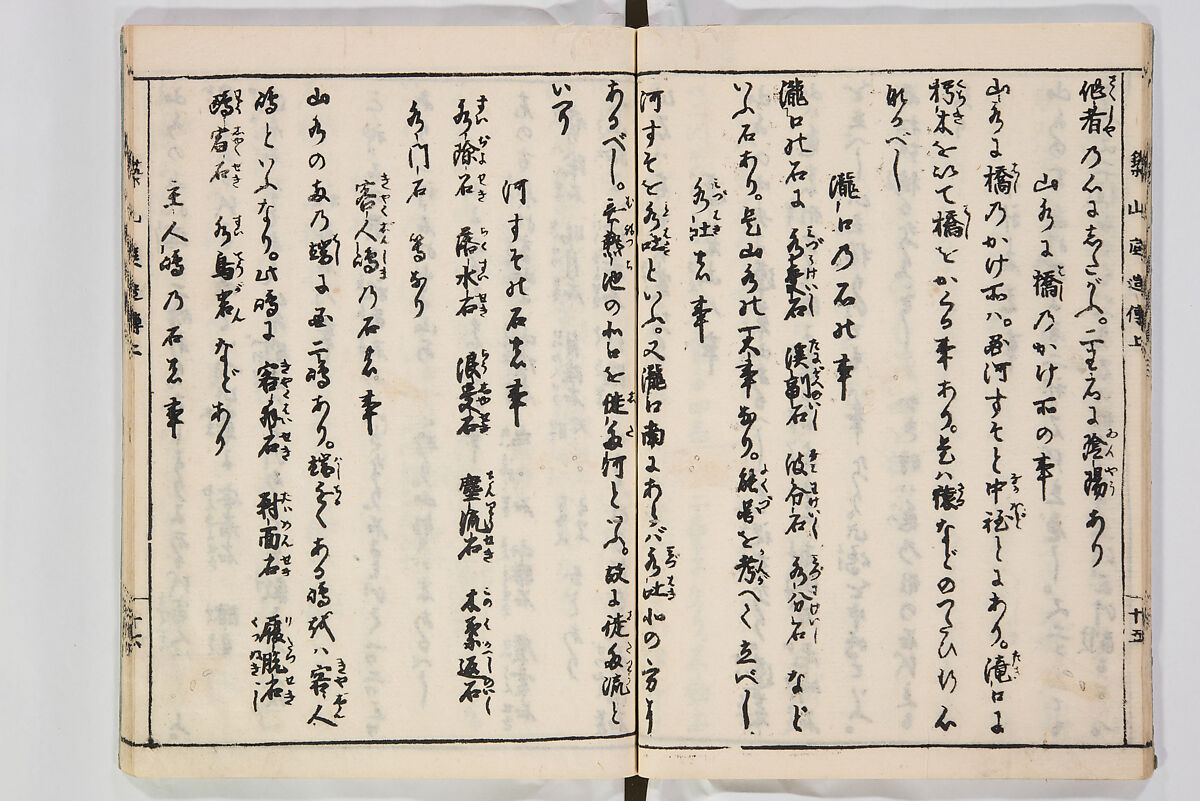 築山庭造傳上
十五
作者乃心にしたがふ。二王石に陰陽あり
山水に橋乃かけ所の事
山水に橋乃かけ所ハ。河すそと中程とにあり。滝口に
朽木を以て橋をかくる事あり。是ハ猿などのつたひ行心
なるべし
瀧口乃石の事
瀧口の石に 水受石 渓副石 波分石 水分石 など
いふ石あり。是山水の一大事なり。能々を考へて立べし
水吐き事
河すそを水吐といふ。又瀧口南にあれバ水吐北の方に
あるべし。無熱池の北口を徒多河といふ。故に徒多流と
いふ
河すその石き事
水除石 落水石 浪受石 塵流石 木葉返石
水門石 等なり
客人嶋乃石き事
山水の池乃端に二嶋あり。端近くある嶋或ハ客人
嶋といふなり。此嶋に 客拝石 対面石 履脱石
鴎宿石 水鳥石 などあり
主人嶋乃石き事
築山庭造傳上
十六